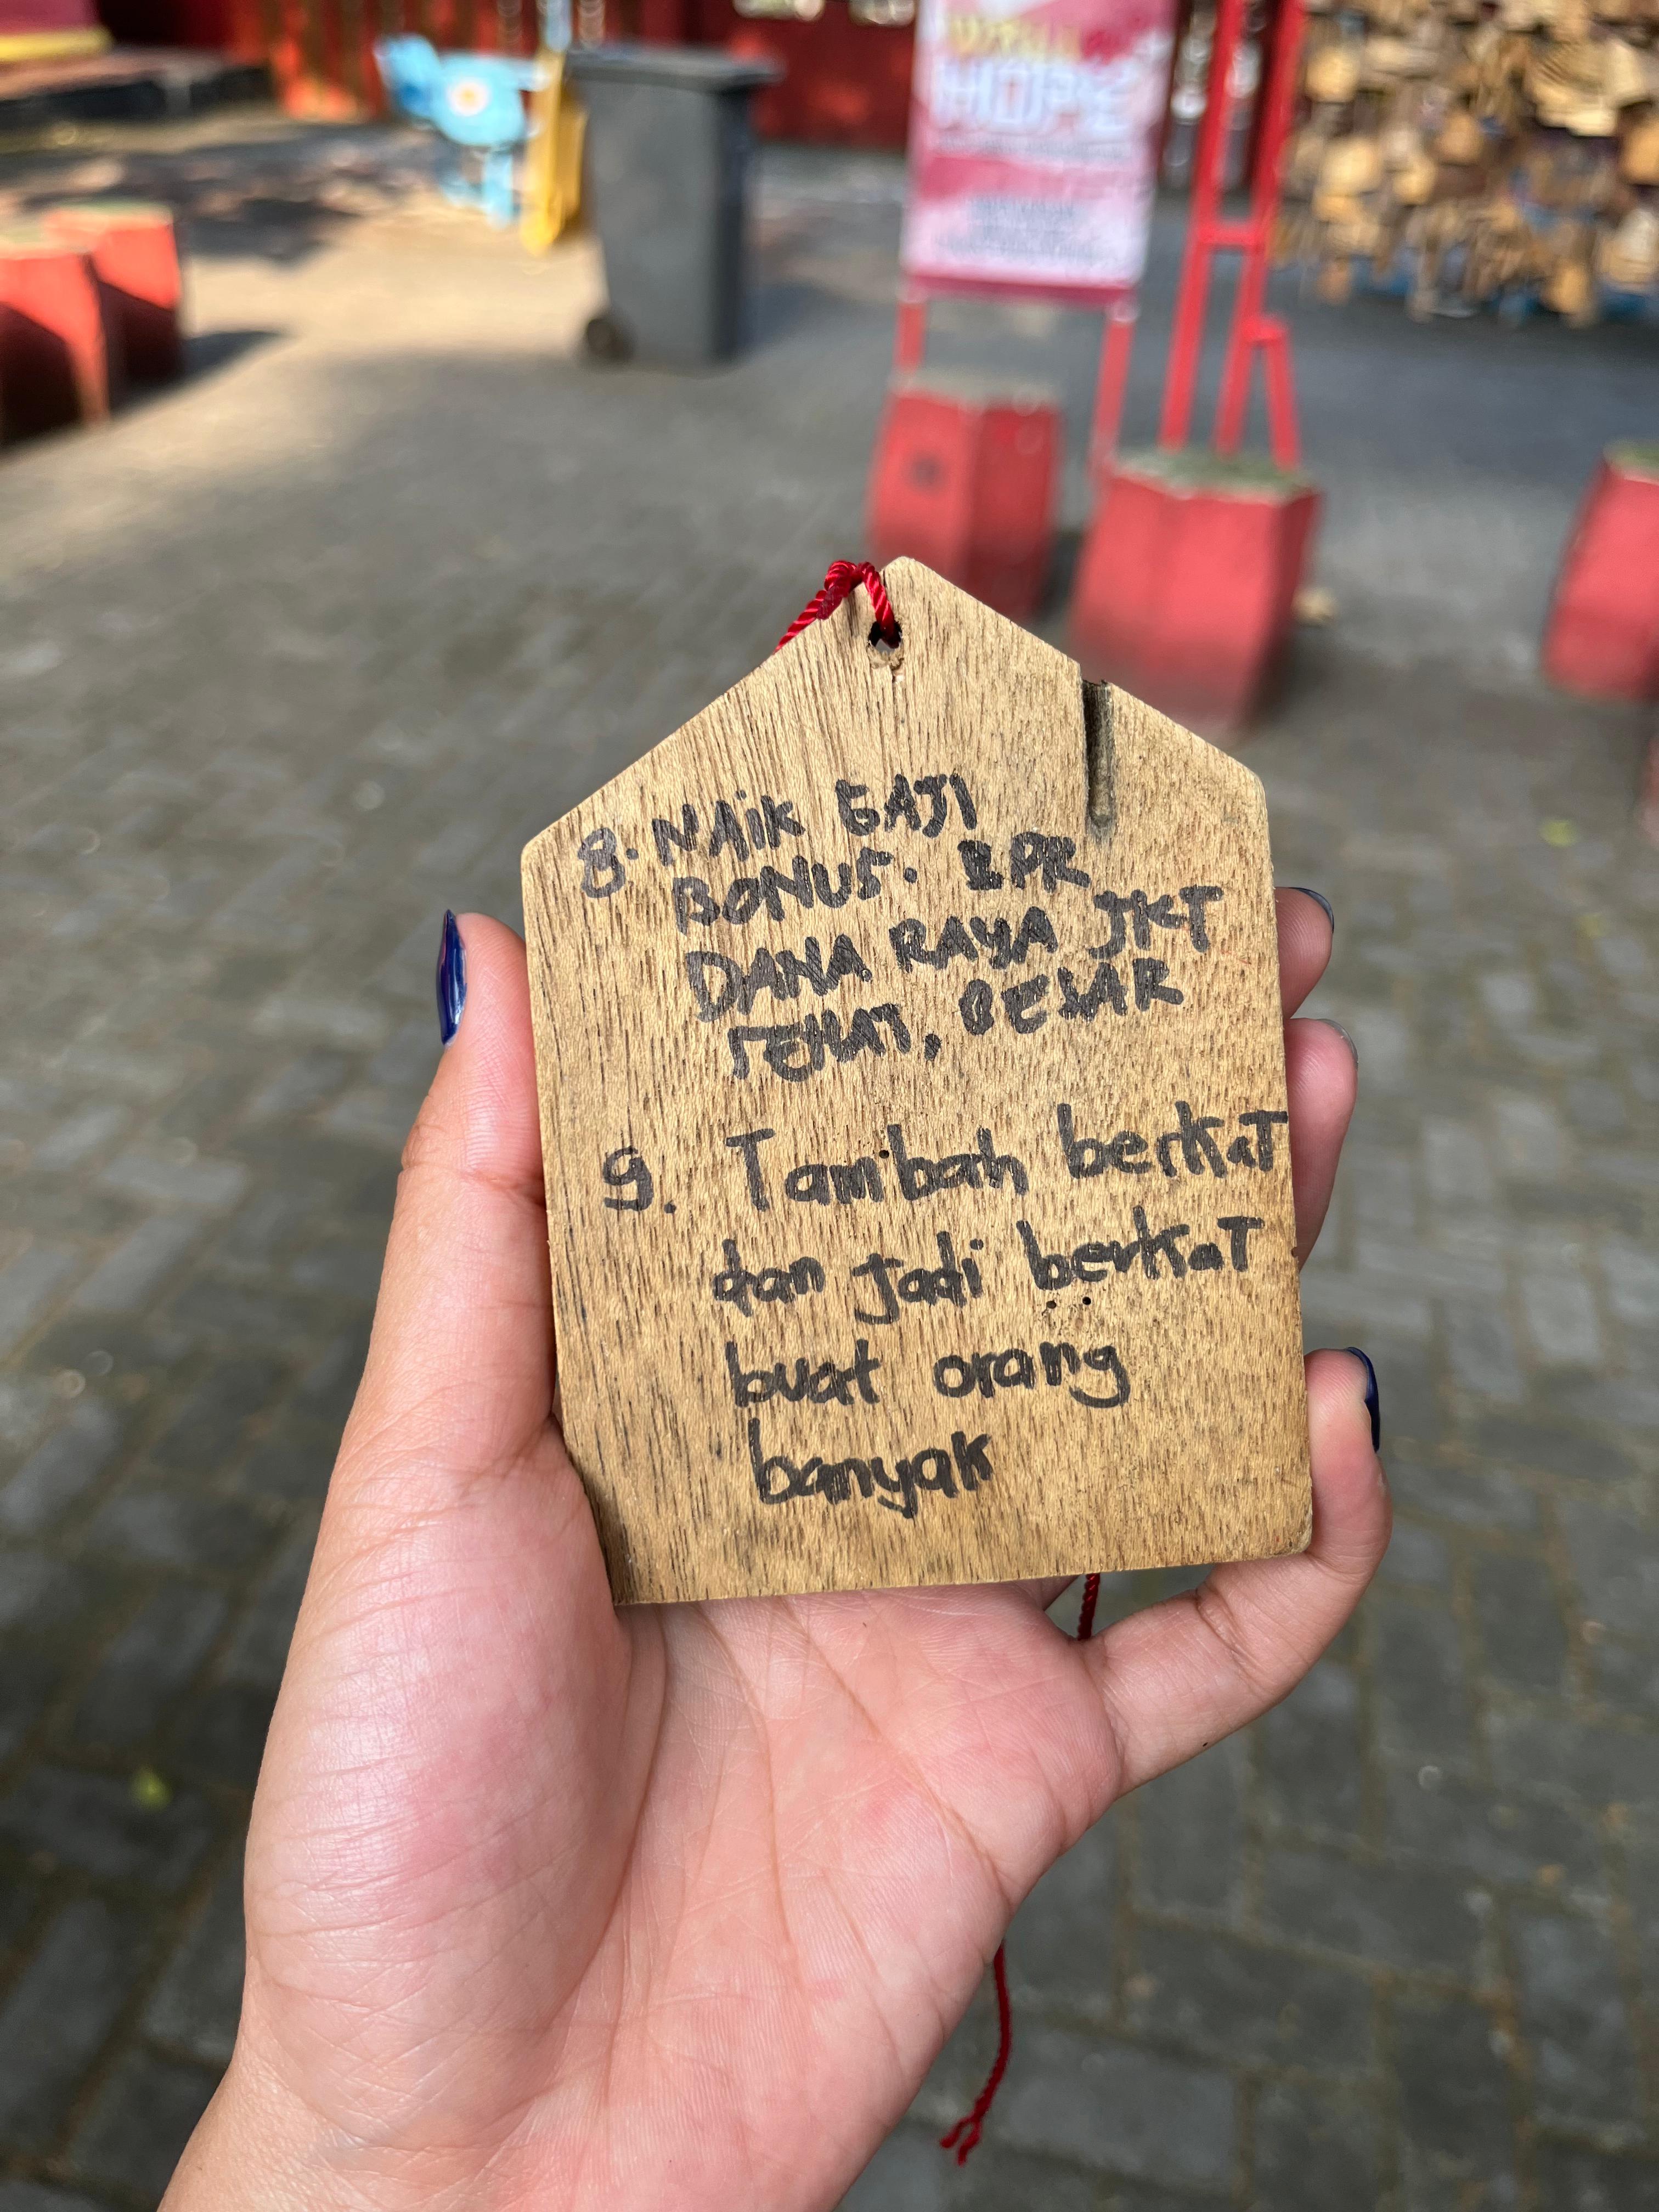 HOPE
8. NAiK GAJI
BONUS. BPR
DANA RAYA JKT
SEHAT, BESAR
9. Tambah berkat
dan jadi berkat
buat orang
banyak